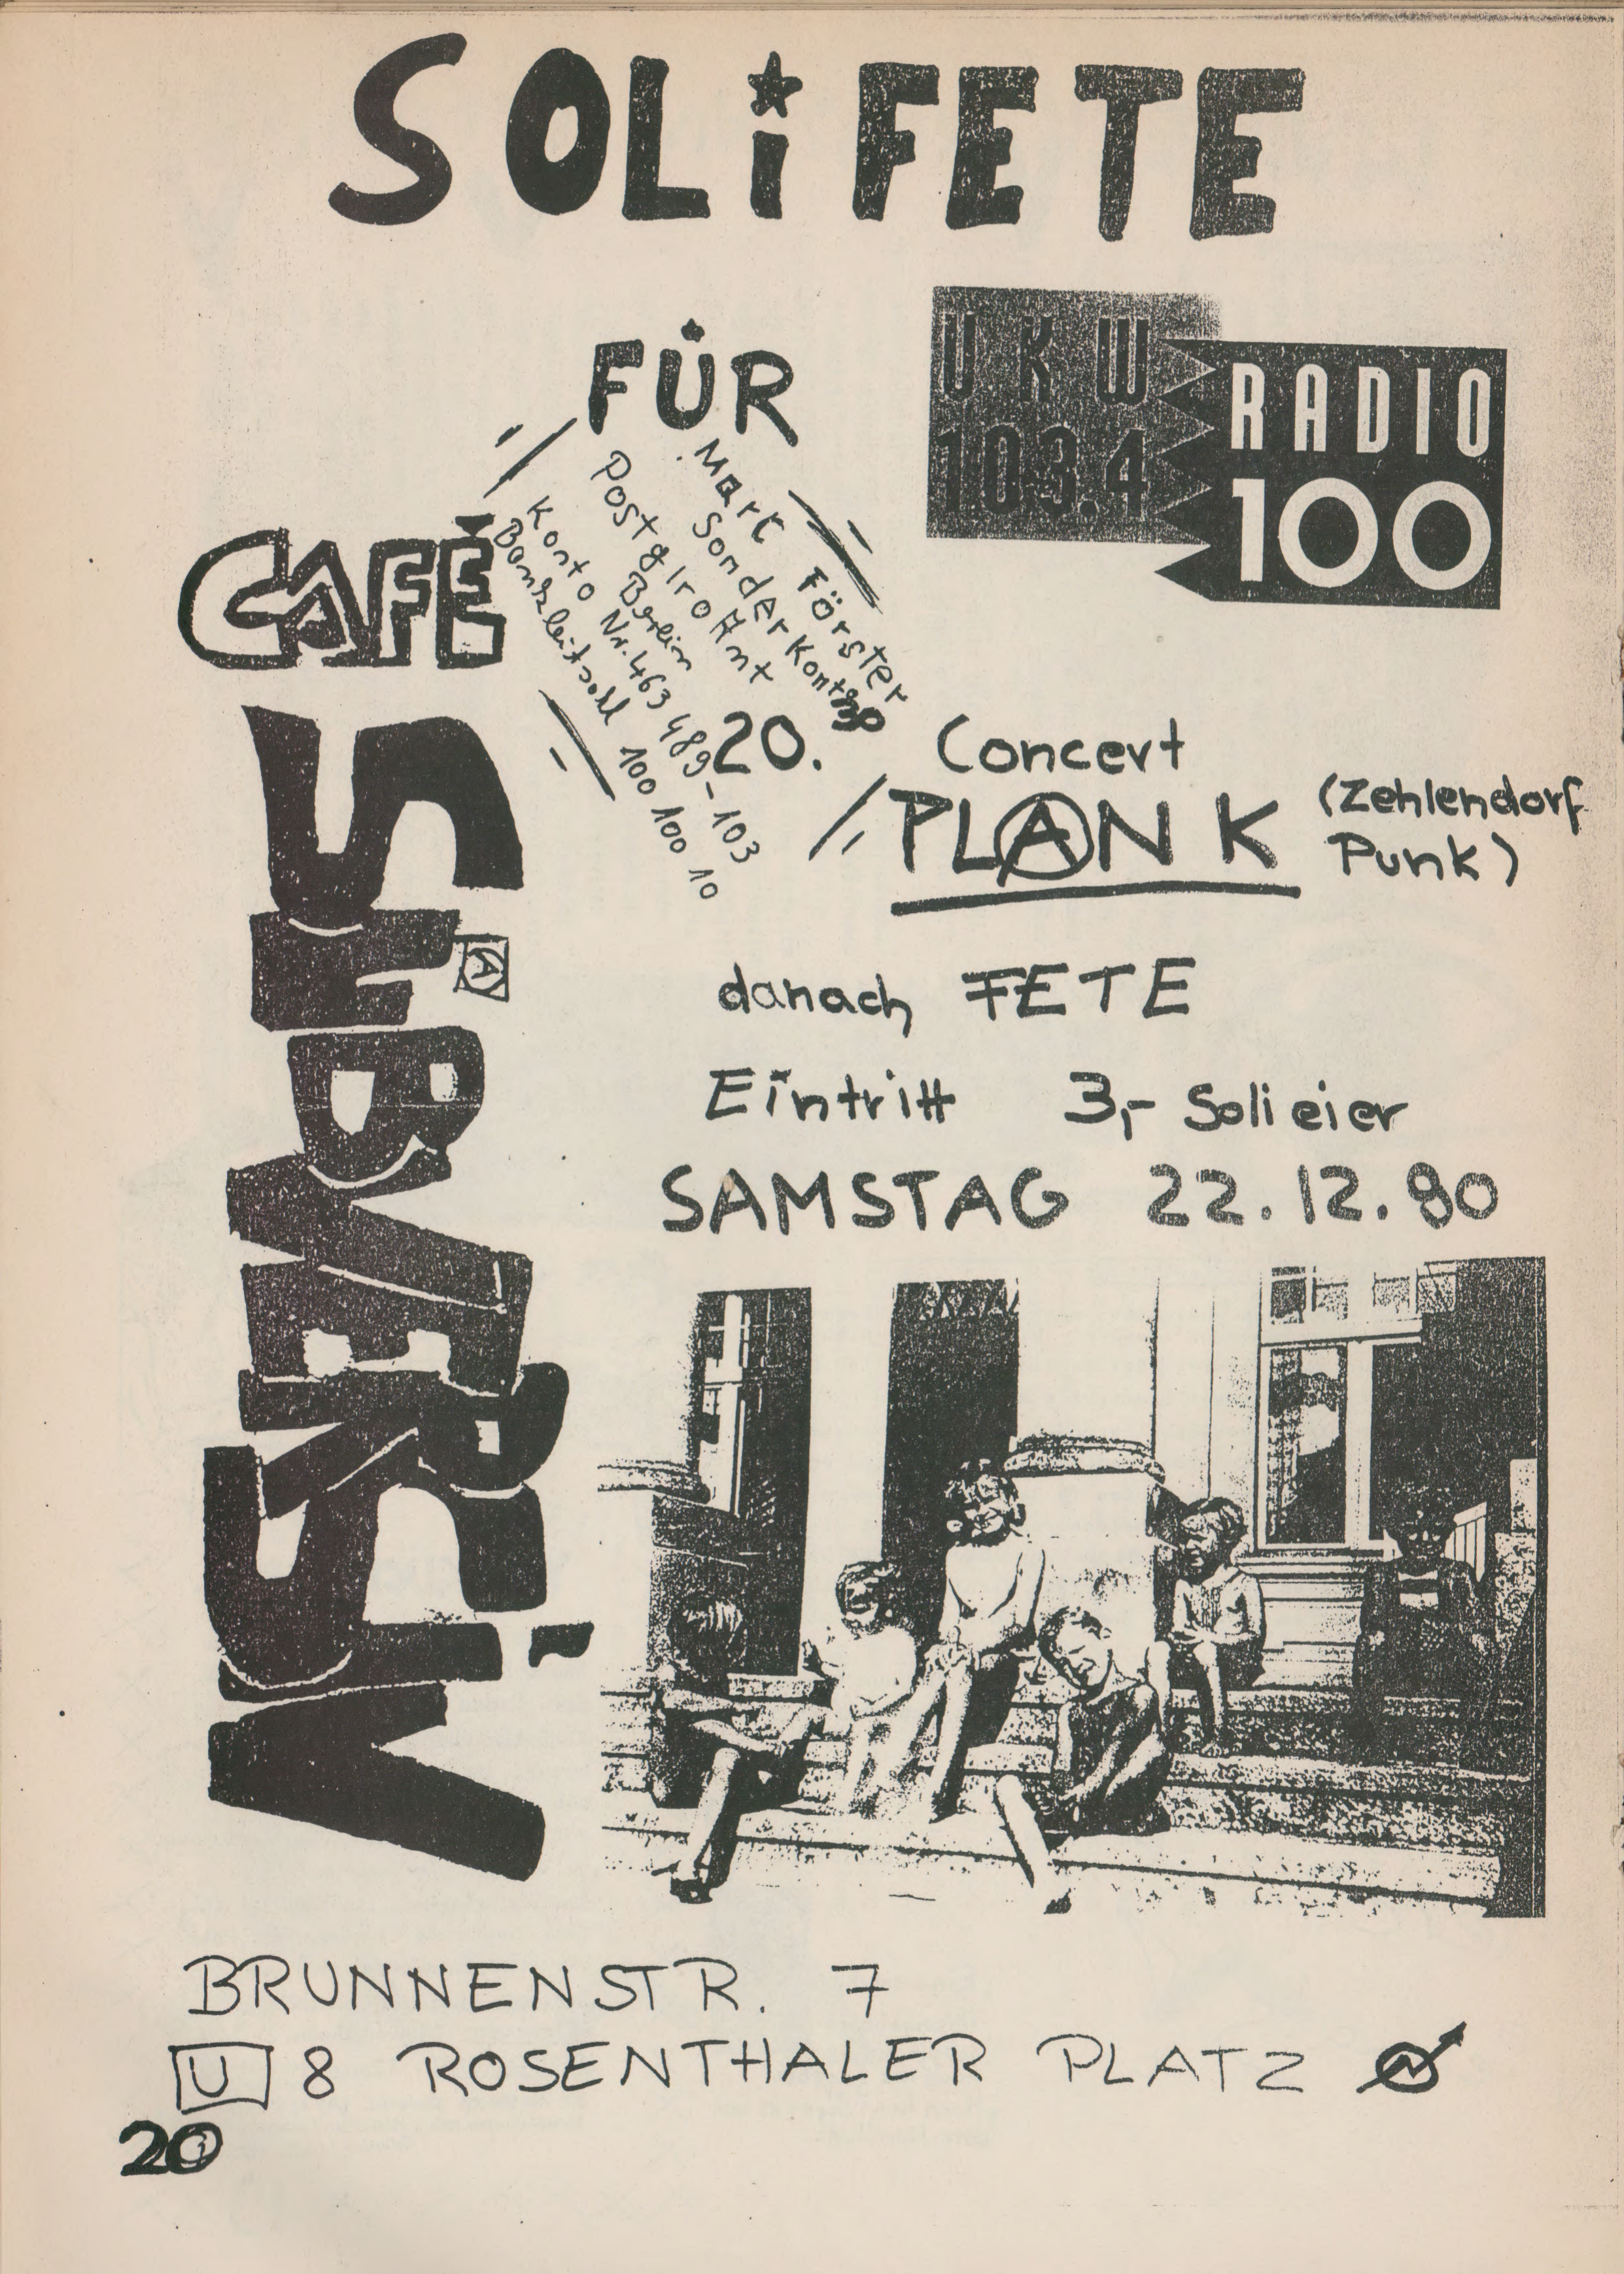 SOLiFETE
FÜR
UKW
103.4
RADIO
100
Förster
Sonderkonto
Postgiro Amt
Berlin
Konto Nr. 463 489-103
Bankleitzahl 100 100 10
CAFÉ
SUBVERSiV
20.30
Concert
PLAN K
(Zehlendorf
Punk)
danach FETE
Eintritt 3,- Solieier
SAMSTAG 22.12.90
BRUNNENSTR. 7
U 8 ROSENTHALER PLATZ
20